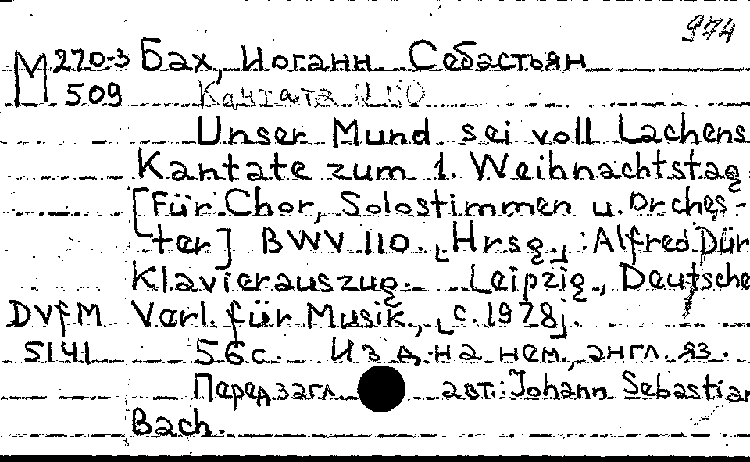 974
М 270-3 Бах, Иоганн Себастьян
509 Кантата N 110
Unser Mund sei voll Lachens
Kantate zum 1. Weihnachtstag
[Für Chor, Solostimmen u. Orches-
ter] BWV 110. [Hrsg.]: Alfred Dür
Klavierauszug. Leipzig, Deutsche
DVfM Verl. für Musik, [c. 1978].
5141 56 с. Изд. на нем., англ. яз.
Перед загл. авт.: Johann Sebastian
Bach.